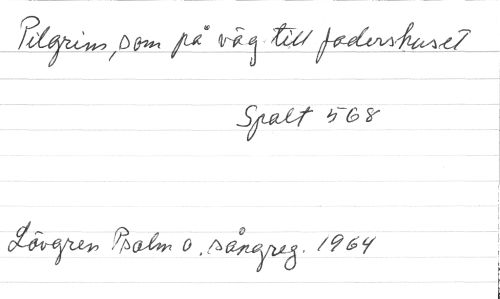 Pilgrim, som på väg till fadershuset
Spalt 568
Lövgren Psalm o. sångreg. 1964